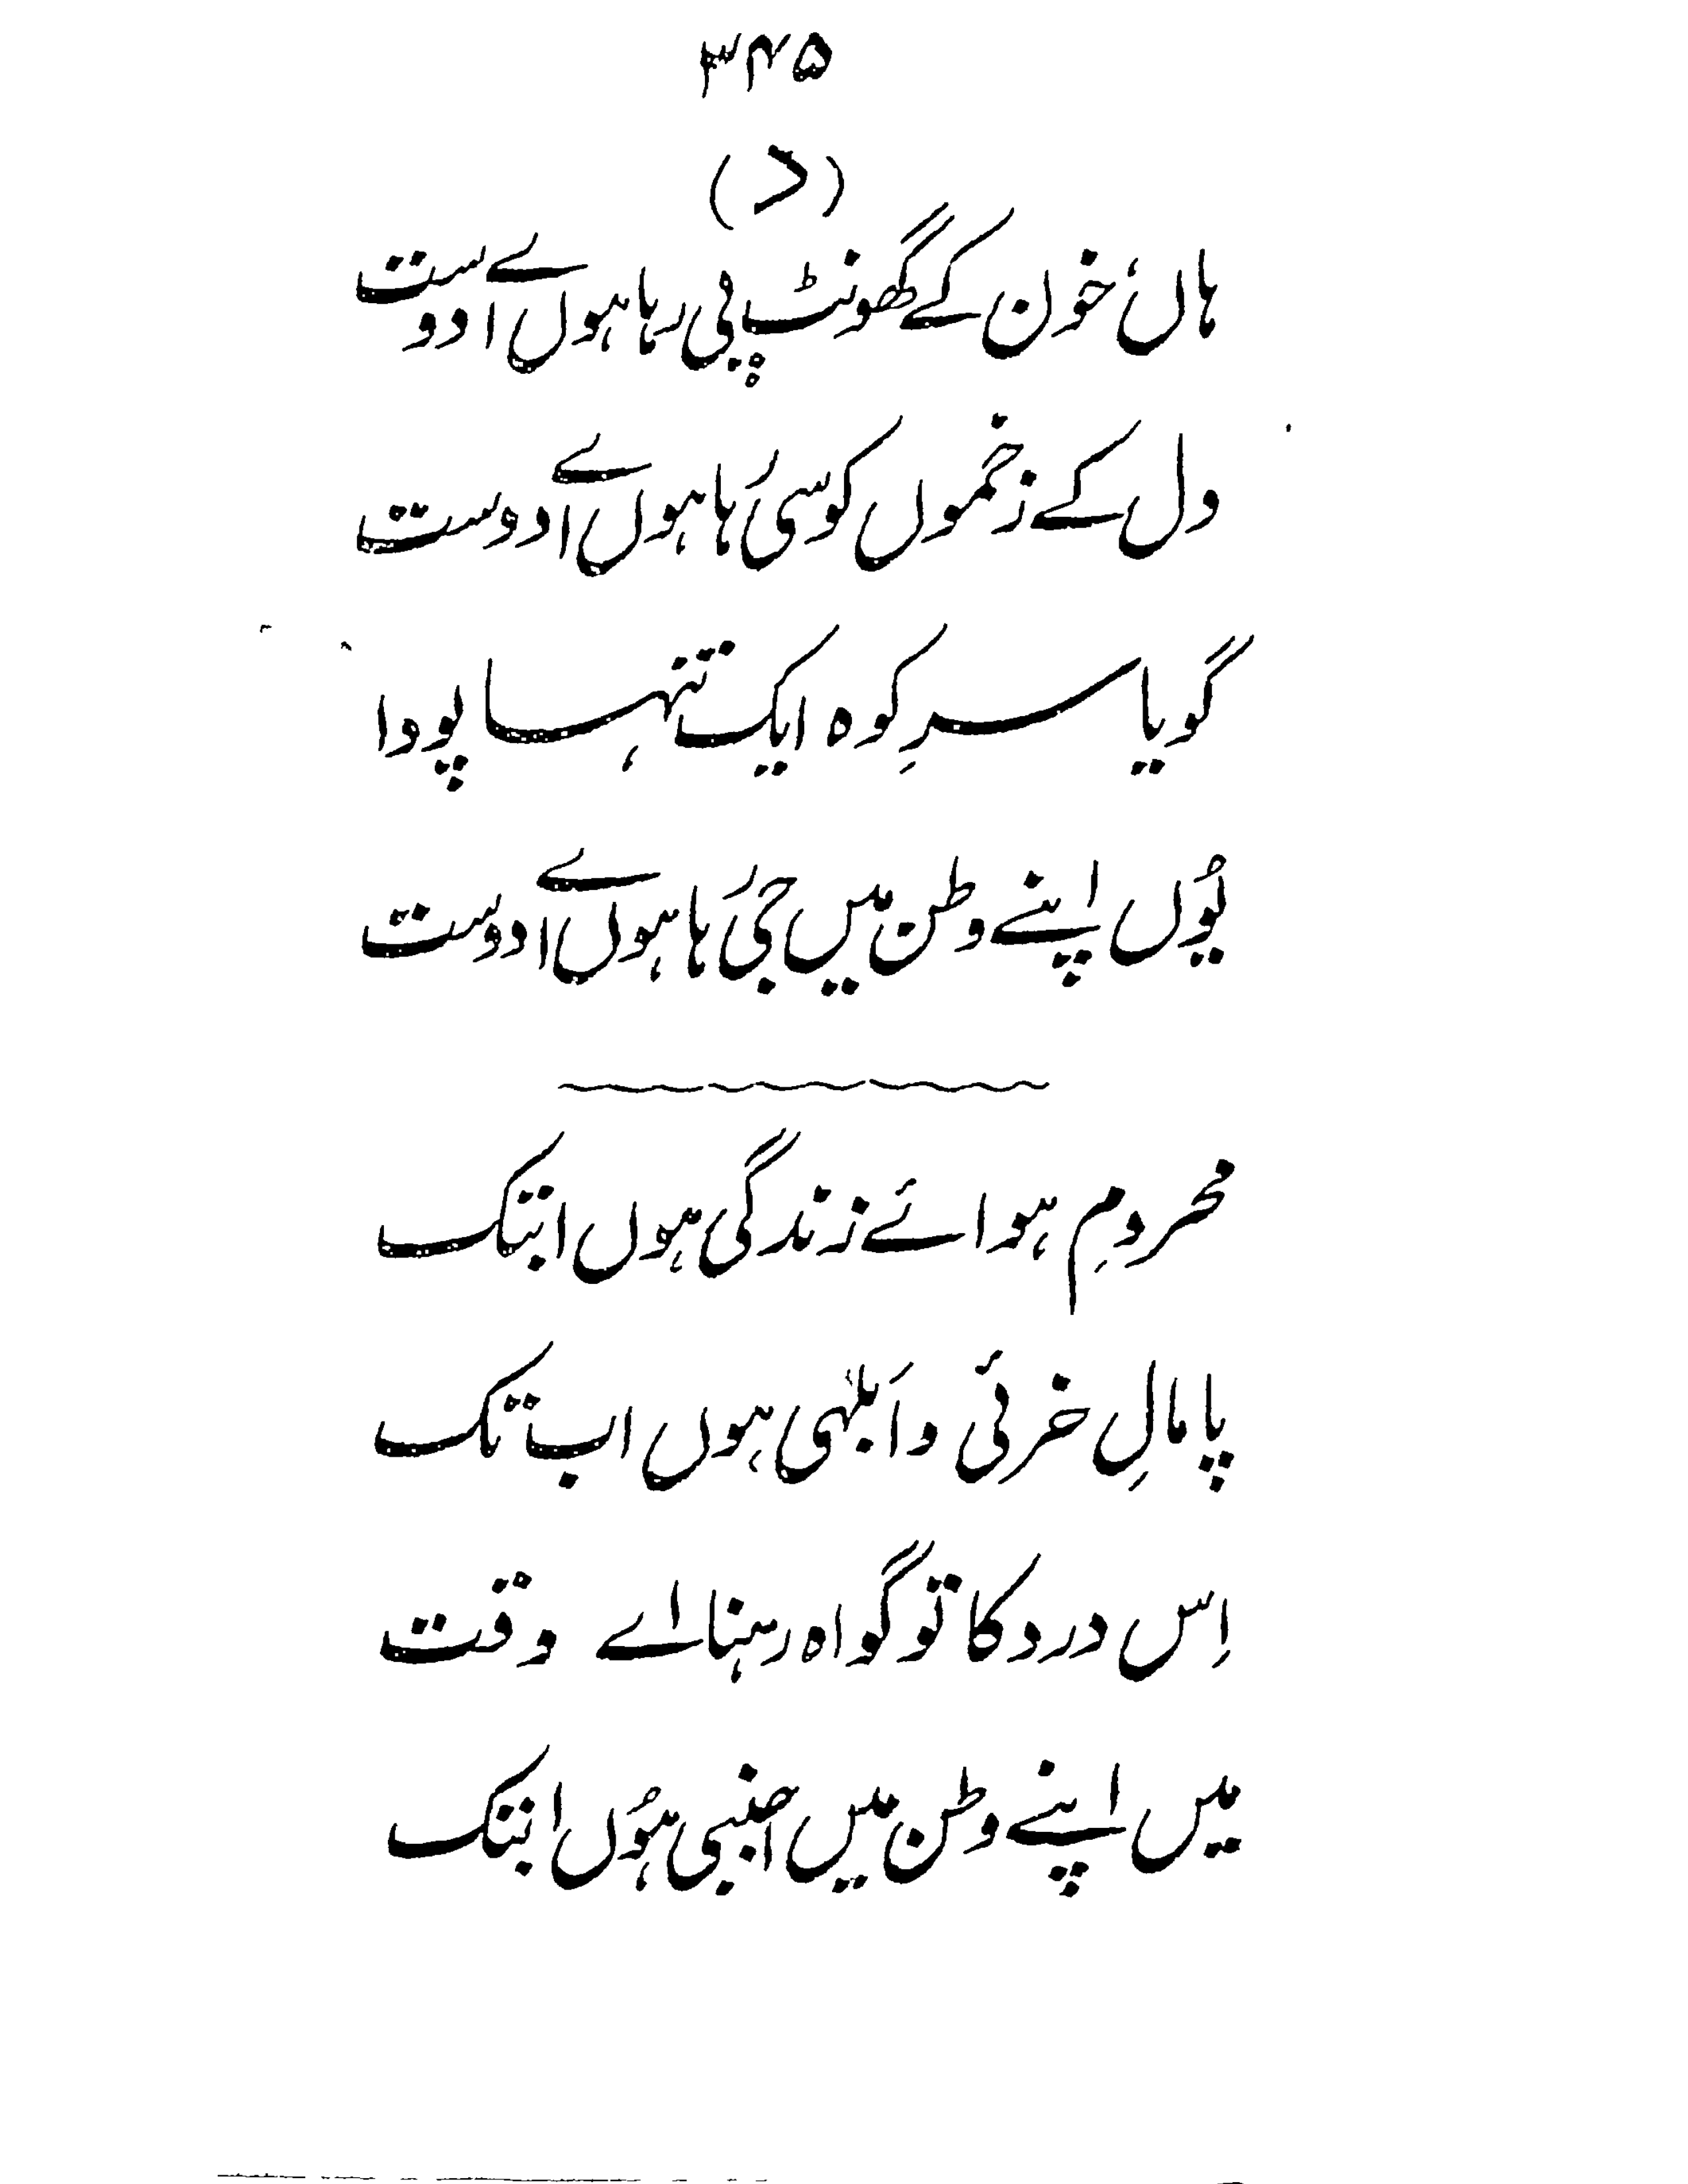 ۳۴۵
(د)
ہاں، خون کے گھونٹ پی رہا ہوں اے دوست
دل کے زخموں کو سی رہا ہوں اے دوست
گویا سرِ کوہ ایک تنہا پودا
یُوں اپنے وطن میں جی رہا ہوں اے دوست
محرومِ ہوائے زندگی ہوں ابتک
پامالِ خرئی و اَبلہی ہوں اب تک
اِس درد کا تو گواہ رہنا اے وقت
میں اپنے وطن میں اجنبی ہُوں ابتک